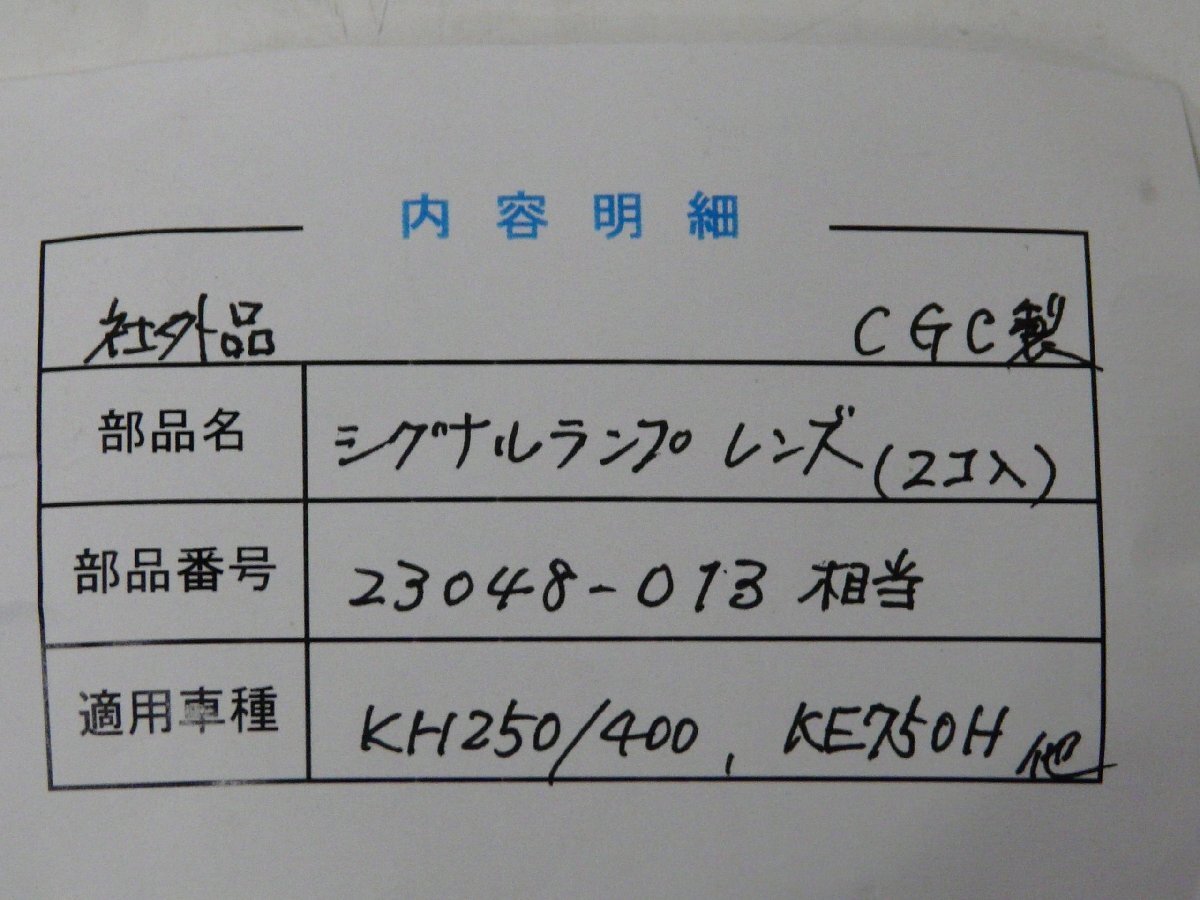 内容明細
社外品 CGC製
部品名 シグナルランプ レンズ (2コ入)
部品番号 23048-013 相当
適用車種 KH250/400, KE750H 他